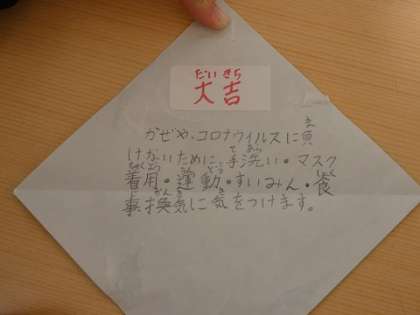 だいきち
大吉
かぜや、コロナウイルスに負
けないために、手洗い・マスク
着用・運動・すいみん・食
事・換気に気をつけます。